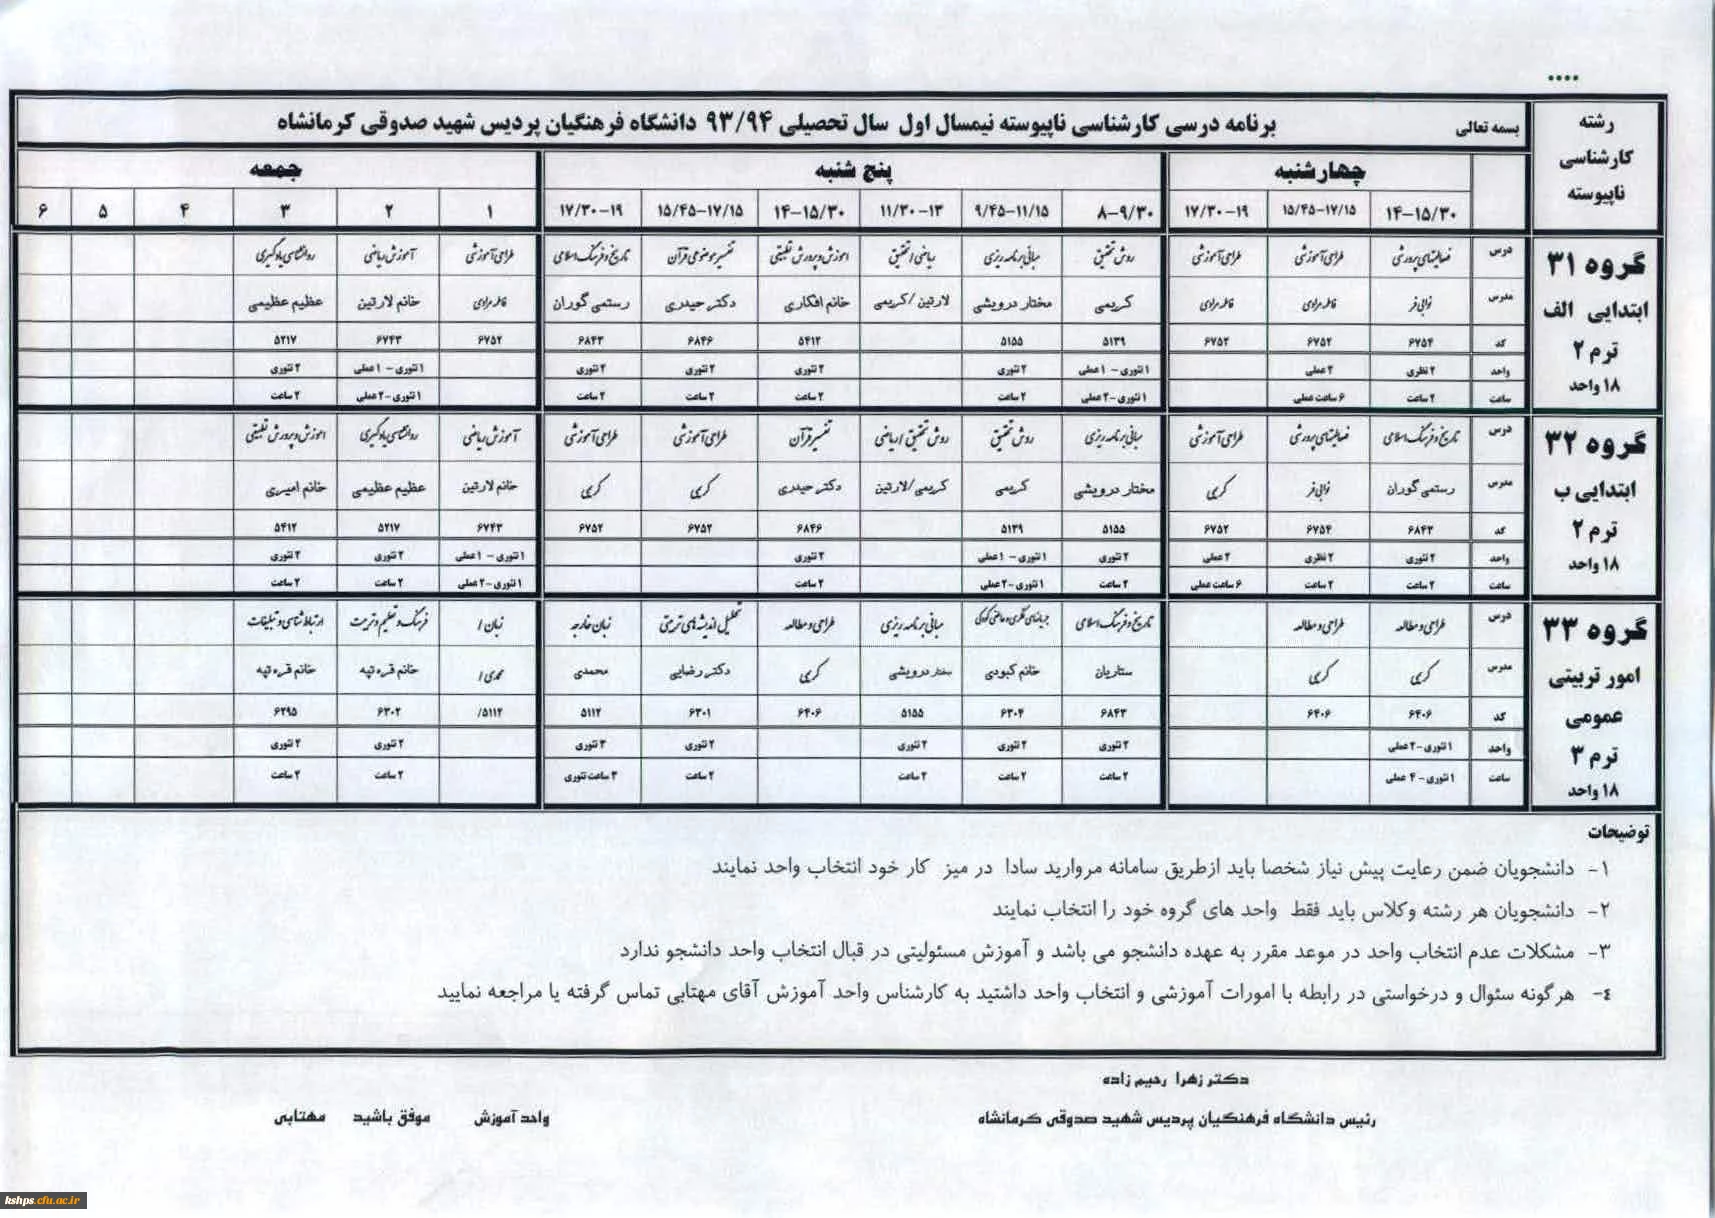 رشته
کارشناسی
ناپیوسته
بسمه تعالی برنامه درسی کارشناسی ناپیوسته نیمسال اول سال تحصیلی ۹۳/۹۴ دانشگاه فرهنگیان پردیس شهید صدوقی کرمانشاه
چهارشنبه پنج شنبه جمعه
۱۴-۱۵/۳۰ ۱۵/۴۵-۱۷/۱۵ ۱۷/۳۰-۱۹ ۸-۹/۳۰ ۹/۴۵-۱۱/۱۵ ۱۱/۳۰-۱۳ ۱۴-۱۵/۳۰ ۱۵/۴۵-۱۷/۱۵ ۱۷/۳۰-۱۹ ۱ ۲ ۳ ۴ ۵ ۶
گروه ۳۱
ابتدایی الف
ترم ۲
۱۸ واحد
درس فعالیتهای پرورشی طراحی آموزشی طراحی آموزشی روش تحقیق مبانی برنامه ریزی ریاضی / تحقیق اموزش و پرورش تطبیقی تفسیر موضوعی قرآن تاریخ و فرهنگ اسلامی طراحی آموزشی آموزش ریاضی روانشناسی یادگیری
مدرس نوابی فر کریمی مختار درویشی لارتین /کریمی خانم افکاری دکتر حیدری رستمی گوران خانم لارتین عظیم عظیمی
کد ۶۷۵۴ ۶۷۵۲ ۶۷۵۲ ۵۱۳۹ ۵۱۵۵ ۵۴۱۲ ۶۸۴۶ ۶۸۴۳ ۶۷۵۲ ۶۷۴۳ ۵۲۱۷
واحد ۲ نظری ۲ عملی ۱ تئوری - ۱ عملی ۲ تئوری ۲ تئوری ۲ تئوری ۲ تئوری ۱ تئوری - ۱ عملی ۲ تئوری
ساعت ۲ ساعت ۶ ساعت عملی ۱ تئوری-۲ عملی ۲ ساعت ۲ ساعت ۲ ساعت ۲ ساعت ۱ تئوری-۲ عملی ۲ ساعت
گروه ۳۲
ابتدایی ب
ترم ۲
۱۸ واحد
درس تاریخ و فرهنگ اسلامی فعالیتهای پرورشی طراحی آموزشی مبانی برنامه ریزی روش تحقیق روش تحقیق / ریاضی تفسیر قرآن طراحی آموزشی طراحی آموزشی آموزش ریاضی روانشناسی یادگیری اموزش و پرورش تطبیقی
مدرس رستمی گوران نوابی فر کرمی مختار درویشی کریمی کریمی/لارتین دکتر حیدری کرمی کرمی خانم لارتین عظیم عظیمی خانم امیری
کد ۶۸۴۳ ۶۷۵۴ ۶۷۵۲ ۵۱۵۵ ۵۱۳۹ ۶۸۴۶ ۶۷۵۲ ۶۷۵۲ ۶۷۴۳ ۵۲۱۷ ۵۴۱۲
واحد ۲ تئوری ۲ نظری ۲ عملی ۲ تئوری ۱ تئوری - ۱ عملی ۲ تئوری ۱ تئوری - ۱ عملی ۲ تئوری ۲ تئوری
ساعت ۲ ساعت ۲ ساعت ۶ ساعت عملی ۲ ساعت ۱ تئوری-۲ عملی ۲ ساعت ۱ تئوری-۲ عملی ۲ ساعت ۲ ساعت
گروه ۳۳
امور تربیتی
عمومی
ترم ۳
۱۸ واحد
درس طراحی و مطالعه طراحی و مطالعه تاریخ و فرهنگ اسلامی مبانی برنامه ریزی طراحی و مطالعه تحلیل اندیشه های تربیتی زبان خارجه زبان / فرهنگ و تعلیم و تربیت ارتباط شناسی و تبلیغات
مدرس کرمی کرمی ستاریان خانم کبودی مختار درویشی کرمی دکتر رضایی محمدی محمدی/ خانم قره تپه خانم قره تپه
کد ۶۴۰۶ ۶۴۰۶ ۶۸۴۳ ۶۳۰۴ ۵۱۵۵ ۶۴۰۶ ۶۳۰۱ ۵۱۱۲ ۵۱۱۲/ ۶۳۰۲ ۶۲۹۵
واحد ۱ تئوری-۲ عملی ۲ تئوری ۲ تئوری ۲ تئوری ۲ تئوری ۳ تئوری ۲ تئوری ۲ تئوری
ساعت ۱ تئوری-۴ عملی ۲ ساعت ۲ ساعت ۲ ساعت ۲ ساعت ۳ ساعت تئوری ۲ ساعت ۲ ساعت
توضیحات
۱- دانشجویان ضمن رعایت پیش نیاز شخصا باید ازطریق سامانه مروارید سادا در میز کار خود انتخاب واحد نمایند
۲- دانشجویان هر رشته وکلاس باید فقط واحد های گروه خود را انتخاب نمایند
۳- مشکلات عدم انتخاب واحد در موعد مقرر به عهده دانشجو می باشد و آموزش مسئولیتی در قبال انتخاب واحد دانشجو ندارد
٤- هرگونه سئوال و درخواستی در رابطه با امورات آموزشی و انتخاب واحد داشتید به کارشناس واحد آموزش آقای مهتابی تماس گرفته یا مراجعه نمایید
دکتر زهرا رحیم زاده
رئیس دانشگاه فرهنگیان پردیس شهید صدوقی کرمانشاه واحد آموزش موفق باشید مهتابی
kshps.cfu.ac.ir